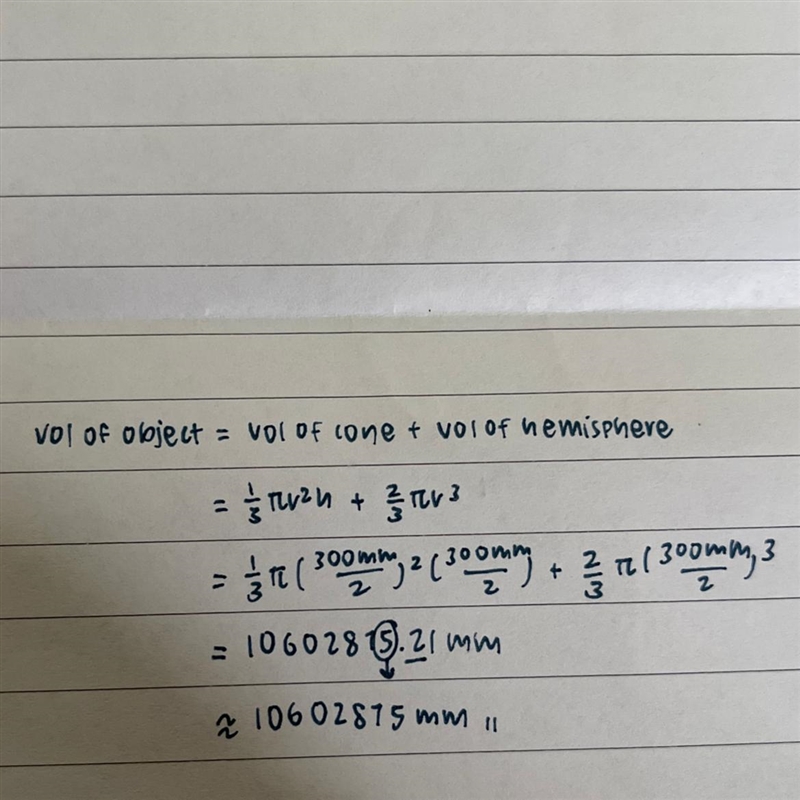 vol of object = vol of cone + vol of hemisphere
= 1/3 πr²h + 2/3 πr³
= 1/3 π(300mm/2)²(300mm/2) + 2/3 π(300mm/2)³
= 10602875.21 mm
≈ 10602875 mm //